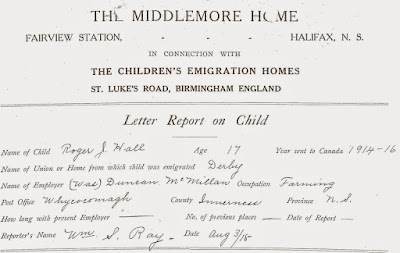 THE MIDDLEMORE HOME
FAIRVIEW STATION, - - - HALIFAX, N. S.
IN CONNECTION WITH
THE CHILDREN'S EMIGRATION HOMES
ST. LUKE'S ROAD, BIRMINGHAM ENGLAND
Letter Report on Child
Name of Child Roger J. Hall Age 17 Year sent to Canada 1914-16
Name of Union or Home from which child was emigrated Derby
Name of Employer (Was) Duncan McMillan Occupation Farming
Post Office Whycocomagh County Inverness Province N.S.
How long with present Employer — No. of previous places — Date of Report —
Reporter's Name Wm. S. Ray. Date Aug 3/15